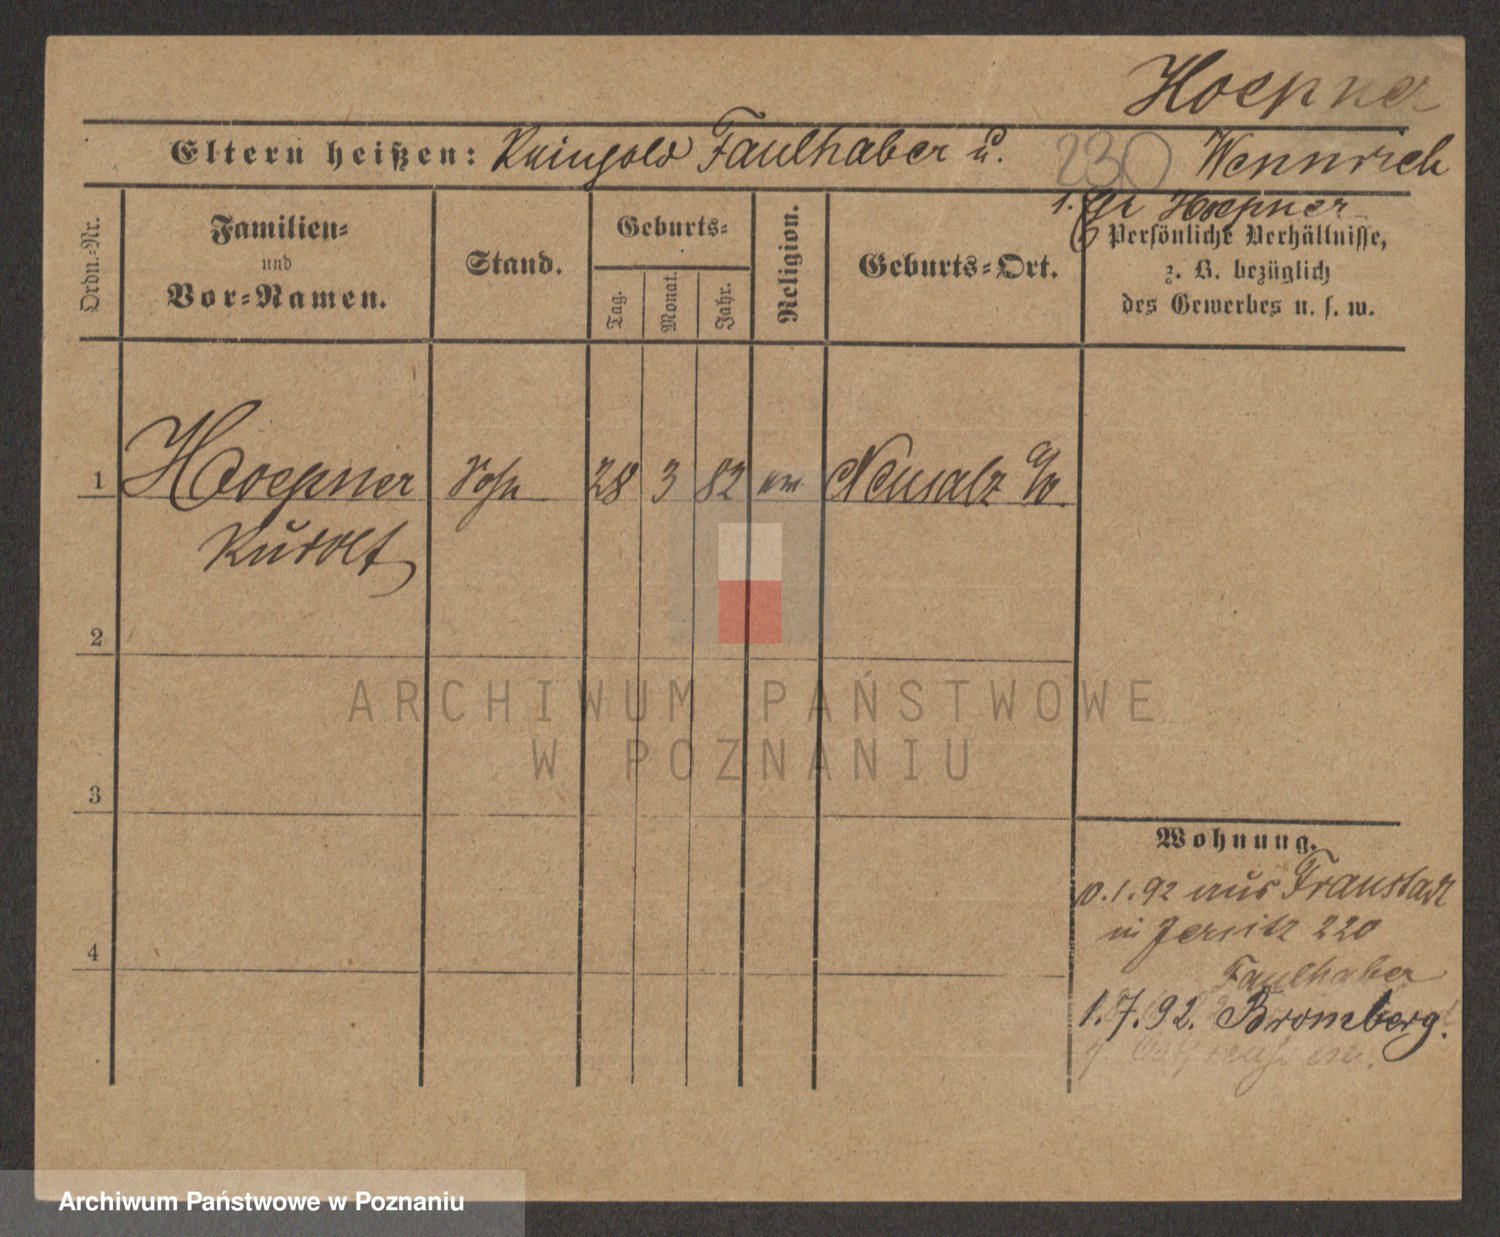 Hoepner
Eltern heißen: Reingold Faulhaber u. 230 Wennrich
1. Hoepner
Ordn.-Nr.
Familien-
und
Vor-Namen.
Stand.
Geburts-
Tag.
Monat.
Jahr.
Religion.
Geburts-Ort.
Persönliche Verhältnisse,
z. B. bezüglich
des Gewerbes u. s. w.
1 Hoepner Sohn 28 3 82 ev Neusalz a/O.
Rudolf
2
ARCHIWUM PAŃSTWOWE
W POZNANIU
3
Wohnung.
.1.92 aus Fraustadt
in Jersitz 220
4
Faulhaber
1.7.92. Bromberg.
Archiwum Państwowe w Poznaniu